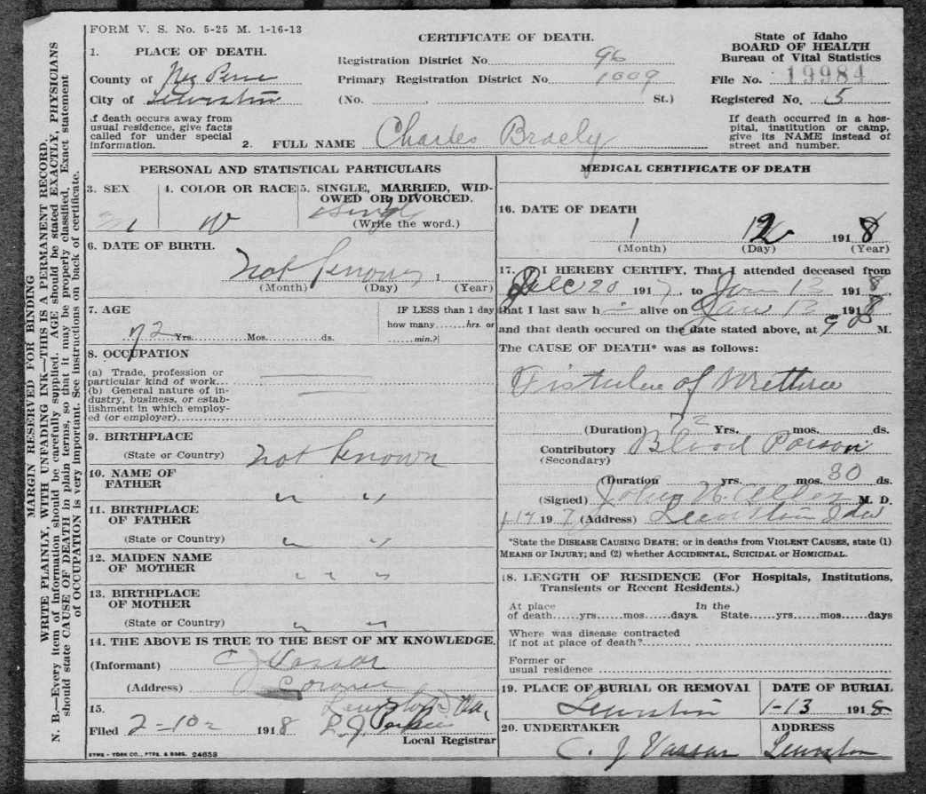 FORM V. S. No. 5-25 M. 1-16-13
CERTIFICATE OF DEATH.
State of Idaho
BOARD OF HEALTH
Bureau of Vital Statistics
File No. 19984
Registered No. 5
1. PLACE OF DEATH.
Registration District No 96
County of Nez Perce
Primary Registration District No 1009
City of Lewiston
(No. St.)
If death occurs away from
usual residence, give facts
called for under special
information.
2. FULL NAME Charles Braely
If death occurred in a hos-
pital, institution or camp,
give its NAME instead of
street and number.
MARGIN RESERVED FOR BINDING
WRITE PLAINLY, WITH UNFADING INK—THIS IS A PERMANENT RECORD.
N. B.—Every item of information should be carefully supplied. AGE should be stated EXACTLY, PHYSICIANS
should state CAUSE OF DEATH in plain terms, so that it may be properly classified. Exact statement
of OCCUPATION is very important. See instructions on back of certificate.
PERSONAL AND STATISTICAL PARTICULARS
3. SEX
M
4. COLOR OR RACE
W
5. SINGLE, MARRIED, WID-
OWED OR DIVORCED.
Single
(Write the word.)
6. DATE OF BIRTH.
not known 1
(Month) (Day) (Year)
7. AGE
72 Yrs. Mos. ds.
IF LESS than 1 day
how many hrs. or
min.?
8. OCCUPATION
(a) Trade, profession or
particular kind of work
(b) General nature of in-
dustry, business, or estab-
lishment in which employ-
ed (or employer)
9. BIRTHPLACE
(State or Country) not known
10. NAME OF
FATHER " "
11. BIRTHPLACE
OF FATHER
(State or Country) " "
12. MAIDEN NAME
OF MOTHER " " "
13. BIRTHPLACE
OF MOTHER
(State or Country) " "
14. THE ABOVE IS TRUE TO THE BEST OF MY KNOWLEDGE.
(Informant) C J Vassar
(Address) Coroner
15.
Filed 2-10 1918
Local Registrar
SYMS-YORK CO., PTRS. & BNDS. 24658
MEDICAL CERTIFICATE OF DEATH
16. DATE OF DEATH
1 12 1918
(Month) (Day) (Year)
17. I HEREBY CERTIFY, That I attended deceased from
Dec 20 1917, to Jan 12 1918
that I last saw h alive on Jan 12 1918
and that death occured on the date stated above, at 9 M.
The CAUSE OF DEATH* was as follows:
Fistulee of Urethra
(Duration) Yrs. mos. ds.
Contributory Blood Poison
(Secondary)
(Duration yrs. mos. 30 ds.
(Signed) John N. Alley M. D.
1-14 19 (Address) Lewiston Ida
*State the DISEASE CAUSING DEATH; or in deaths from VIOLENT CAUSES, state (1)
MEANS OF INJURY; and (2) whether ACCIDENTAL, SUICIDAL or HOMICIDAL.
18. LENGTH OF RESIDENCE (For Hospitals, Institutions,
Transients or Recent Residents.)
At place In the
of death yrs. mos. days State yrs. mos. days
Where was disease contracted
if not at place of death?
Former or
usual residence
19. PLACE OF BURIAL OR REMOVAL
Lewiston
DATE OF BURIAL
1-13 1918
20. UNDERTAKER
C. J Vassar
ADDRESS
Lewiston